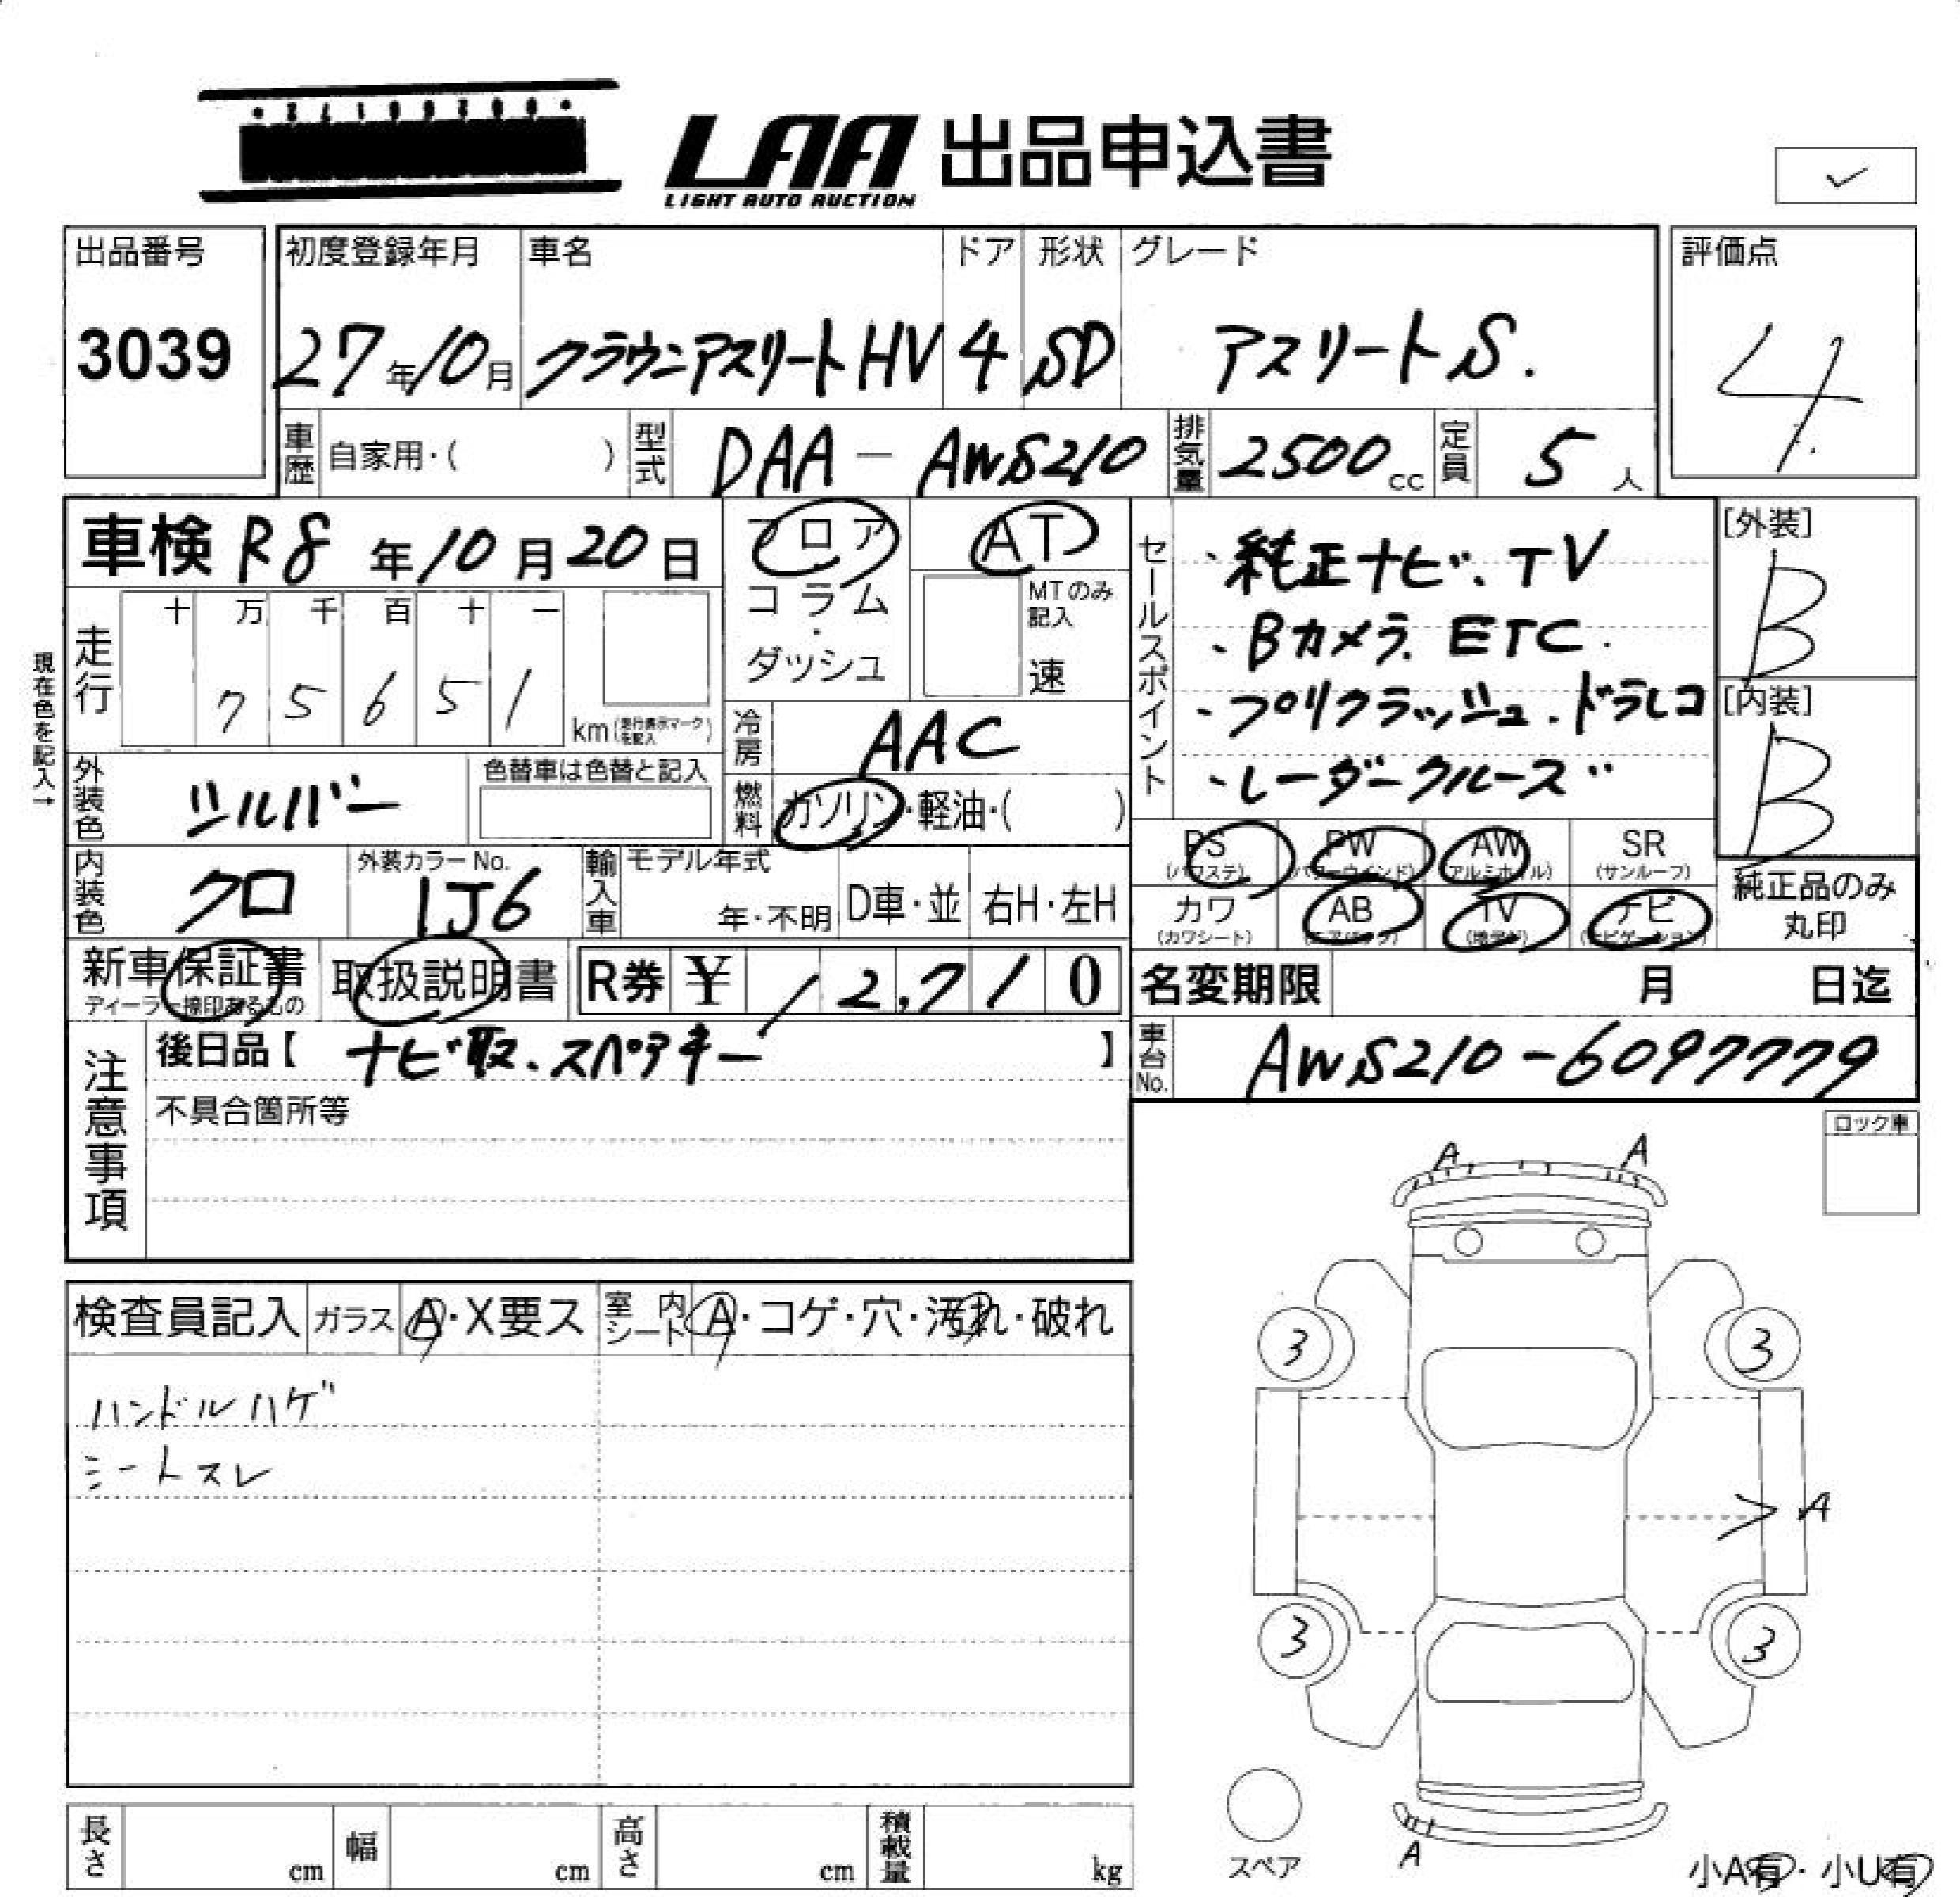 LAA 出品申込書
LIGHT AUTO AUCTION
出品番号 初度登録年月 車名 ドア 形状 グレード 評価点
3039 27年10月 クラウンアスリートHV 4 SD アスリートS. 4
車歴 自家用・( ) 型式 DAA-AWS210 排気量 2500cc 定員 5人
車検 R8年10月20日 フロア AT
コラム・ダッシュ MTのみ記入 速
現在色を記入→
走行 十 万 千 百 十 一
7 5 6 5 1 km (走行表示マークを記入)
冷房 AAC
外装色 シルバー 色替車は色替と記入
燃料 ガソリン・軽油・( )
セールスポイント
・純正ナビ、TV
・Bカメラ、ETC.
・プリクラッシュ.ドラレコ
・レーダークルーズ
[外装]
B
[内装]
B
PS (パワステ) PW (パワーウインド) AW (アルミホイル) SR (サンルーフ)
カワ (カワシート) AB (エアバッグ) TV (地デジ) ナビ (ナビゲーション)
純正品のみ丸印
内装色 クロ 外装カラーNo. 1J6 輸入車 モデル年式 年・不明 D車・並 右H・左H
新車保証書 取扱説明書 R券 ¥ 12,710
ディーラー捺印あるもの
名変期限 月 日迄
車台No. AWS210-6097779
注意事項
後日品【 ナビ取.スペアキー 】
不具合箇所等
ロック車
検査員記入 ガラス A・X要ス 室内シート A・コゲ・穴・汚れ・破れ
ハンドルハゲ
シートスレ
A A
3 3
A
3 3
A
スペア
小A有・小U有
長さ cm 幅 cm 高さ cm 積載量 kg